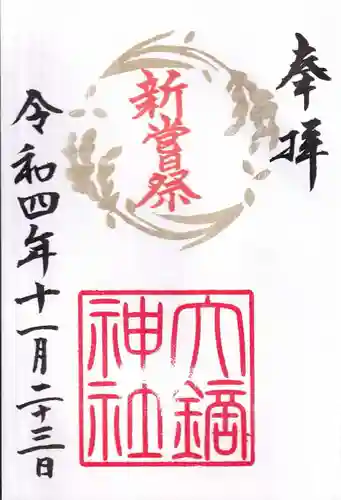 奉拝
新嘗祭
六鏑神社
令和四年十一月二十三日